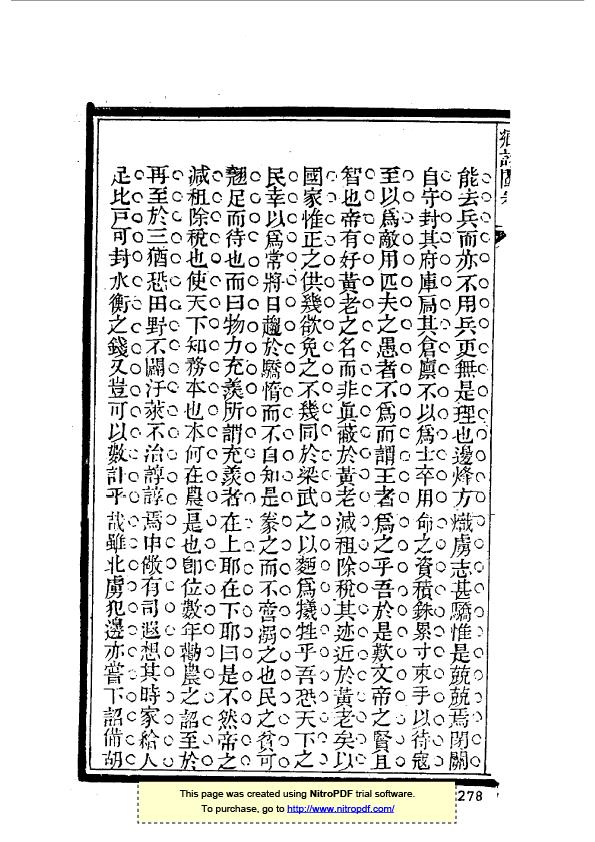 能去兵而亦不用兵更無是理也邊烽方熾虜志甚驕惟是兢兢焉閉關
自守封其府庫扃其倉廪不以爲士卒用命之資積銖累寸束手以待寇
至以爲敵用匹夫之愚者不爲而謂王者爲之乎吾於是歎文帝之賢且
智也帝有好黃老之名而非眞蔽於黃老減租除稅其迹近於黃老矣以
國家惟正之供幾欲免之不幾同於梁武之以麵爲犧牲乎吾恐天下之
民幸以爲常將日趨於驕惰而不自知是豢之而不啻溺之也民之貧可
翹足而待也而曰物力充羨所謂充羨者在上耶在下耶曰是不然帝之
減租除稅也使天下知務本也本何在農是也卽位數年勸農之詔至於
再至於三猶恐田野不闢汙萊不治諄諄焉申儆有司遐想其時家給人
足比戶可封水衡之錢又豈可以數計乎哉雖北虜犯邊亦嘗下詔備胡
This page was created using NitroPDF trial software.
To purchase, go to http://www.nitropdf.com/
278